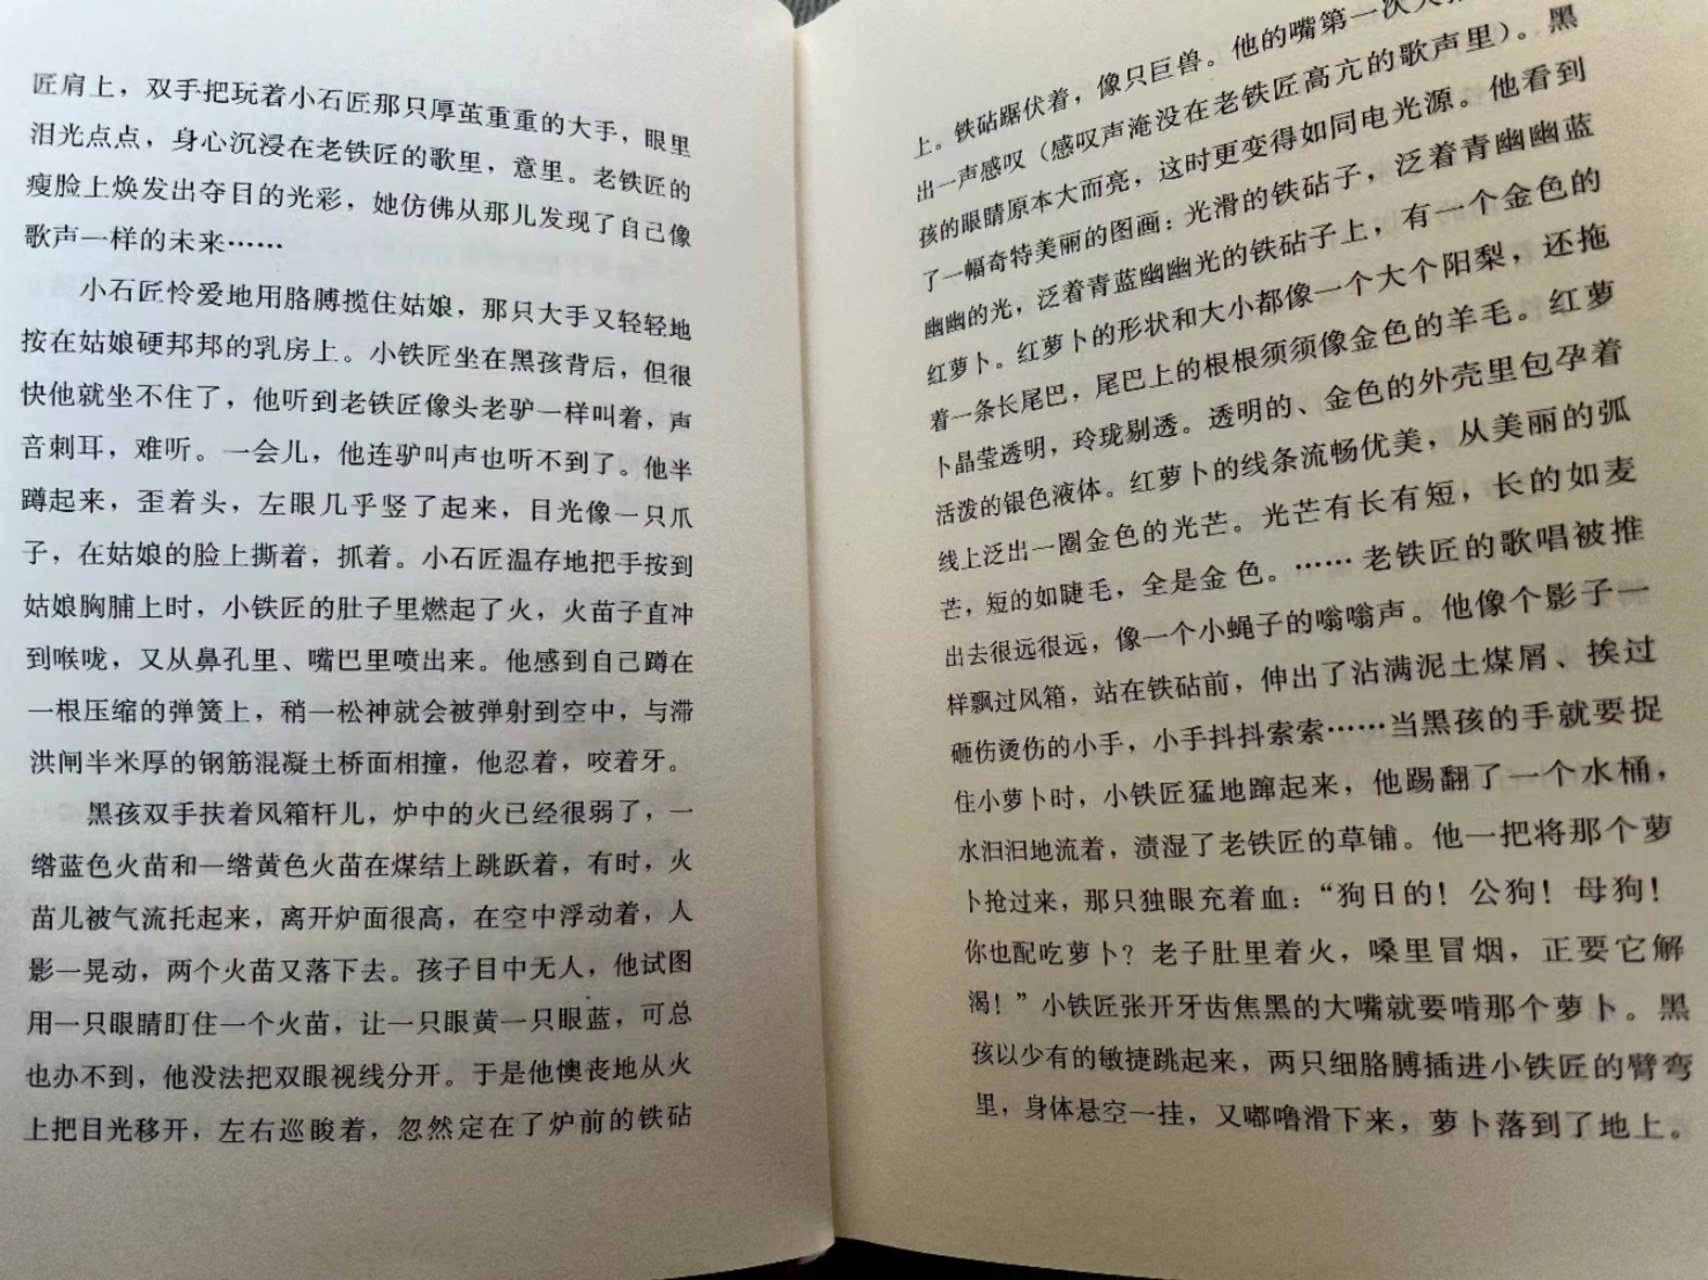 匠肩上，双手把玩着小石匠那只厚茧重重的大手，眼里
泪光点点，身心沉浸在老铁匠的歌里，意里。老铁匠的
瘦脸上焕发出夺目的光彩，她仿佛从那儿发现了自己像
歌声一样的未来……
小石匠怜爱地用胳膊揽住姑娘，那只大手又轻轻地
按在姑娘硬邦邦的乳房上。小铁匠坐在黑孩背后，但很
快他就坐不住了，他听到老铁匠像头老驴一样叫着，声
音刺耳，难听。一会儿，他连驴叫声也听不到了。他半
蹲起来，歪着头，左眼几乎竖了起来，目光像一只爪
子，在姑娘的脸上撕着，抓着。小石匠温存地把手按到
姑娘胸脯上时，小铁匠的肚子里燃起了火，火苗子直冲
到喉咙，又从鼻孔里、嘴巴里喷出来。他感到自己蹲在
一根压缩的弹簧上，稍一松神就会被弹射到空中，与滞
洪闸半米厚的钢筋混凝土桥面相撞，他忍着，咬着牙。
黑孩双手扶着风箱杆儿，炉中的火已经很弱了，一
绺蓝色火苗和一绺黄色火苗在煤结上跳跃着，有时，火
苗儿被气流托起来，离开炉面很高，在空中浮动着，人
影一晃动，两个火苗又落下去。孩子目中无人，他试图
用一只眼睛盯住一个火苗，让一只眼黄一只眼蓝，可总
也办不到，他没法把双眼视线分开。于是他懊丧地从火
上把目光移开，左右巡睃着，忽然定在了炉前的铁砧
上。铁砧踞伏着，像只巨兽。他的嘴第一次
出一声感叹（感叹声淹没在老铁匠高亢的歌声里）。黑
孩的眼睛原本大而亮，这时更变得如同电光源。他看到
了一幅奇特美丽的图画：光滑的铁砧子，泛着青幽幽蓝
幽幽的光，泛着青蓝幽幽光的铁砧子上，有一个金色的
红萝卜。红萝卜的形状和大小都像一个大个阳梨，还拖
着一条长尾巴，尾巴上的根根须须像金色的羊毛。红萝
卜晶莹透明，玲珑剔透。透明的、金色的外壳里包孕着
活泼的银色液体。红萝卜的线条流畅优美，从美丽的弧
线上泛出一圈金色的光芒。光芒有长有短，长的如麦
芒，短的如睫毛，全是金色。……老铁匠的歌唱被推
出去很远很远，像一个小蝇子的嗡嗡声。他像个影子一
样飘过风箱，站在铁砧前，伸出了沾满泥土煤屑、挨过
砸伤烫伤的小手，小手抖抖索索……当黑孩的手就要捉
住小萝卜时，小铁匠猛地蹿起来，他踢翻了一个水桶，
水汩汩地流着，渍湿了老铁匠的草铺。他一把将那个萝
卜抢过来，那只独眼充着血：“狗日的！公狗！母狗！
你也配吃萝卜？老子肚里着火，嗓里冒烟，正要它解
渴！”小铁匠张开牙齿焦黑的大嘴就要啃那个萝卜。黑
孩以少有的敏捷跳起来，两只细胳膊插进小铁匠的臂弯
里，身体悬空一挂，又嘟噜滑下来，萝卜落到了地上。